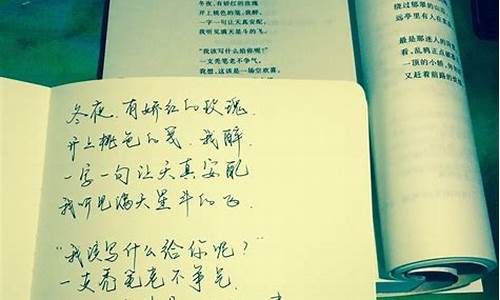 冬夜，有娇红的玫瑰
开上桃色的笺，我醉，
一字一句让天真安配
我听见满天星斗的飞。
"我该写什么给你呢？"
一支秃笔老不争气。
我想，这该是一场空欢喜。
冬夜.有娇红的玫瑰.
开上桃色的笺.我醉.
一字一句让天真安配
我听见满天星斗的飞.
"我该写什么给你呢？"
一支秃笔老不争气.
绕过郁翠的山
远亭里有人在
最是那迷人的
看，乱鸦正点
一顶的小轿，
又赶着前路的